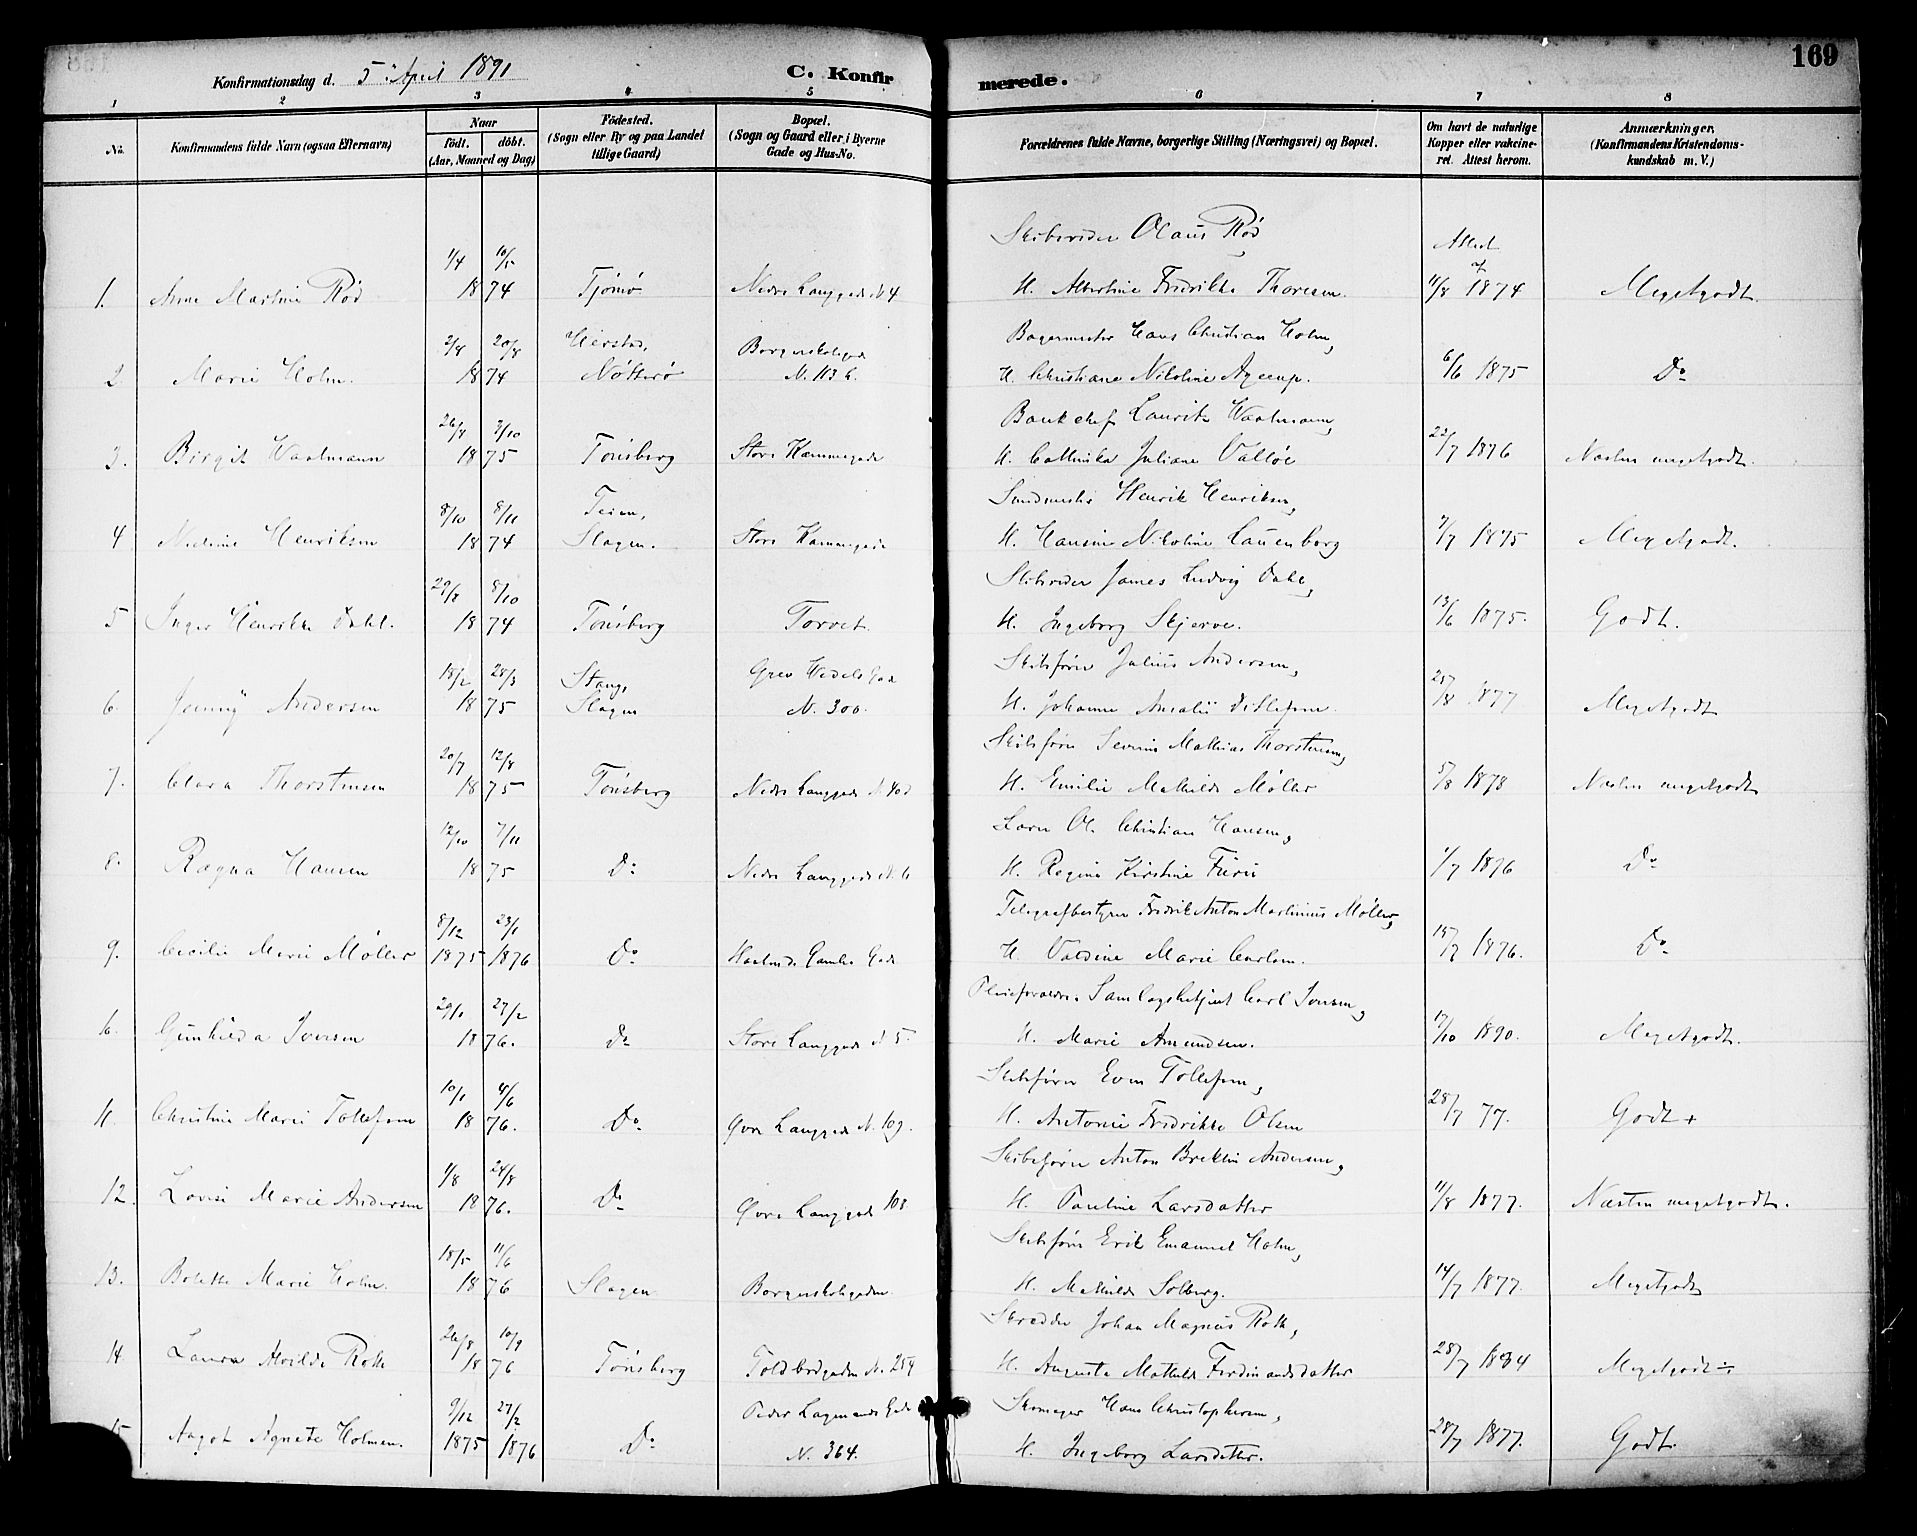 169
Konfirmationsdag d. 5 April 1891 C. Konfirmerede.
1 2 3 4 5 6 7 8
No. Konfirmandens fulde Navn (ogsaa Efternavn) Naar født. døbt. (Aar, Maaned og Dag) Fødested. (Sogn eller By og paa Landet tillige Gaard) Bopæl. (Sogn og Gaard eller i Byerne Gade og Hus-No. Forældrenes fulde Navne, borgerlige Stilling (Næringsvei) og Bopæl. Om havt de naturlige Kopper eller vakcineret. Attest herom. Anmærkninger. (Konfirmandens Kristendomskundskab m. V.)
Olaus Rød Attest
1/4 10/5
1. Anne Martine Rød 1874 Tjømø Nedre Langgade N. 4 H. Albertine Fredrikke Thoresen. 11/8 1874 Megetgodt.
2/8 20/8 Borgerskolegade Bagermester Hans Christian Holm,
2. Marie Holm. 1874 Nøtterø N. 113 b. H. Christiane Nikoline 6/6 1875 Do
26/8 3/10 Bankchef Lauritz Waalmann,
3. Birgit Waalmann 1875 Tønsberg Store Kammegade H. Cathinka Juliane Valløe 22/7 1876 Næsten megetgodt.
8/10 8/11 Teien, Henrik Henriksen,
4 Henriksen 1874 Slagen. Store Kammegade H. Hansine Nikoline Lauenborg 7/7 1875 Megetgodt.
29/8 8/10 James Ludvig Dahl,
5 Inger Henrikke Dahl. 1874 Tønsberg Torvet. H. Ingeborg Skjerve. 13/6 1875. Godt.
18/2 28/3 Stang, Grev Wedels Gade Skibsfører Julius Andersen,
6. Jenny Andersen 1875 Slagen N. 300. H. Johanne Amalie Ditlefsen. 25/8 1877 Megetgodt
20/7 12/8 Skibsfører Severin Mathias Thorstensen,
7. Clara Thorstensen 1875 Tønsberg Nedre Langgade N. 40 d H. Emilie Mathilde Møller 5/8 1878 Næsten megetgodt
12/10 7/11 Ol. Christian Hansen,
8. Ragna Hansen 1875 Do Nedre Langgade N. 6 H. Regine Kirstine Furu 1/7 1876 Do
8/12 23/1 Telegrafbestyrer Fredrik Anton Martinius Møller,
9. Cecilie Marie Møller 1875 1876 Do Gamle Gade H. Valdine Marie Carlsen. 15/7 1876. Do
29/1 27/2 Pleieforældre. Samlagsbetjent Carl Iversen,
Gunhilda Iversen 1876. Do Store Langgade N 5 H. Marie Amundsen. 17/10 1890. Megetgodt.
10/1 4/6 Skibsfører Even Tollefsen,
11. Christine Marie Tollefsen 1876. Do Øvre Langgade N. 109. H. Antonie Fredrikke Olsen 28/7 77. Godt +
1/8 24/8 Skibsfører Anton Andersen,
12. Lovise Marie Andersen 1876. Do Øvre Langgade 108 H. Pauline Larsdatter 11/8 1877. Næsten megetgodt.
18/5 11/6 Skibsfører Erik Emanuel Holm,
13. Bolette Marie Holm. 1876 Slagen Borgerskolegaden. H. Mathilde Solberg. 14/7 1877. Megetgodt
26/8 10/9 Skredder Johan Magnus Roth,
14 Laura Alvilde Roth 1876 Tønsberg Toldbodgaden N. 254 H. Augusta Mathilde Ferdinandsdatter 28/7 1884 Megetgodt ÷
9/12 27/2 Peder Lagmands Gade Skomager Hans Christophersen,
15 Aagot Agnete Holmen. 1875 1876 Do N. 364. H. Ingeborg Larsdatter. 28/7 1877. Godt.